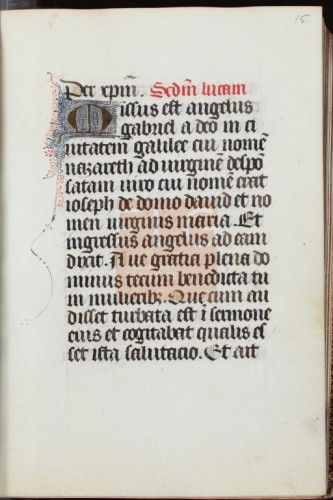 15
Per xpm̄. Scdm̄ lucam
Missus est angelus
gabriel a deo in ci
uitatem galilee cui nomē
nazareth ad uirginē despō
satam uiro cui nomē erat
ioseph de domo dauid et no
men uirginis maria. Et
ingressus angelus ad eam
dixit. Aue gratia plena do
minus tecum benedicta tu
in mulieribꝫ. Que cum au
disset turbata est ī sermone
eius et cogitabat qualis es
set ista salutacio. Et ait